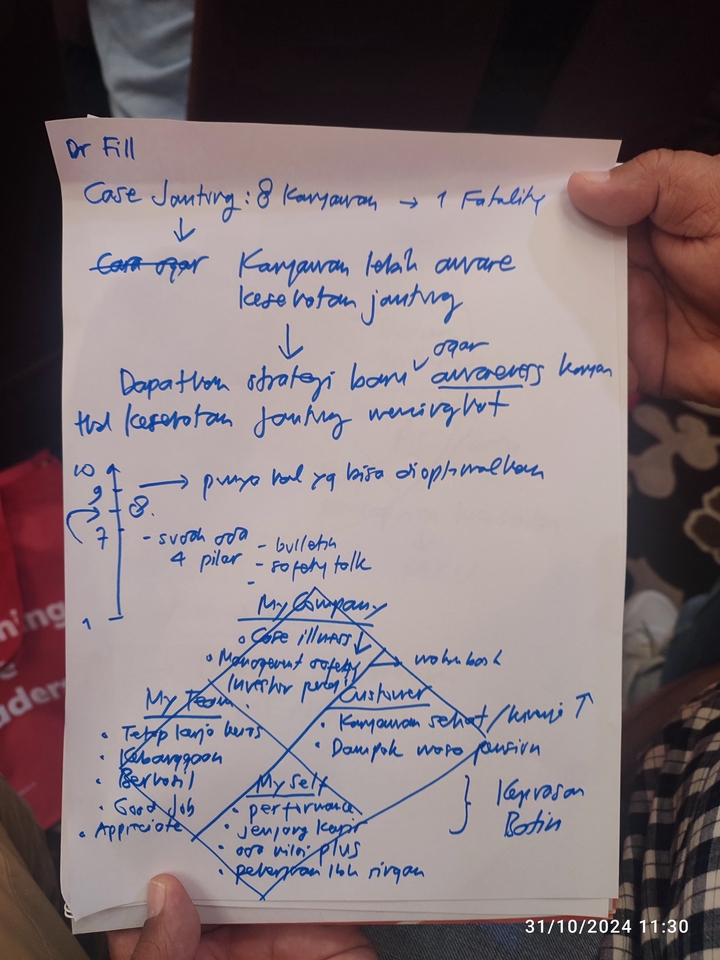 Dr Fill
Case Jantung : 8 Karyawan → 1 Fatality
↓
Cara agar Karyawan lebih aware
kesehatan jantung
↓
agar
Dapatkan strategi baru awareness karyawan
thd kesehatan jantung meningkat
10
9 → punya hal yg bisa dioptimalkan
8
7
- sudah ada
4 pilar
- bulletin
- safety talk
-
1
My Company
• Case illness ↓
• Management safety →
Investor
My Team
• Tetap kerja keras
• Kebanggaan
• Berhasil
• Good Job
• Appriciate
Customer
• Karyawan sehat / ↑
• Dampak masa pensiun
My Self
• performance
• jenjang karir
• ada nilai plus
• pekerjaan lbh ringan
} Kepuasan
Batin
ning
e
aders
31/10/2024 11:30